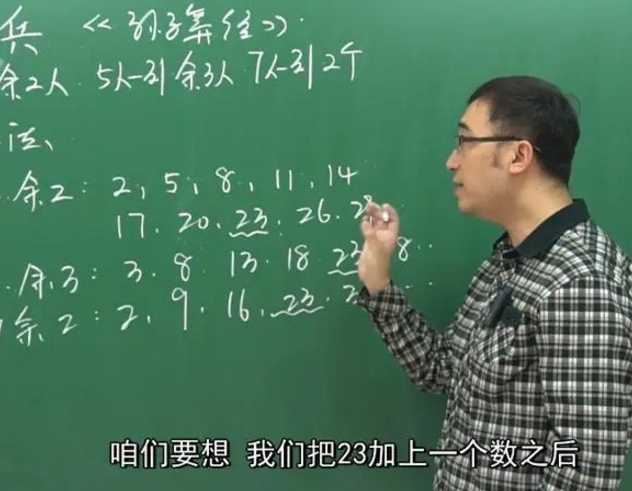 兵 《孙子算经》.
余2人 5人一列余3人 7人一列2个
法、
余2: 2, 5, 8, 11, 14
17. 20. 23. 26. 2
余3: 3. 8 13. 18 23 8..
余2: 2. 9. 16. 23. 2
咱们要想 我们把23加上一个数之后